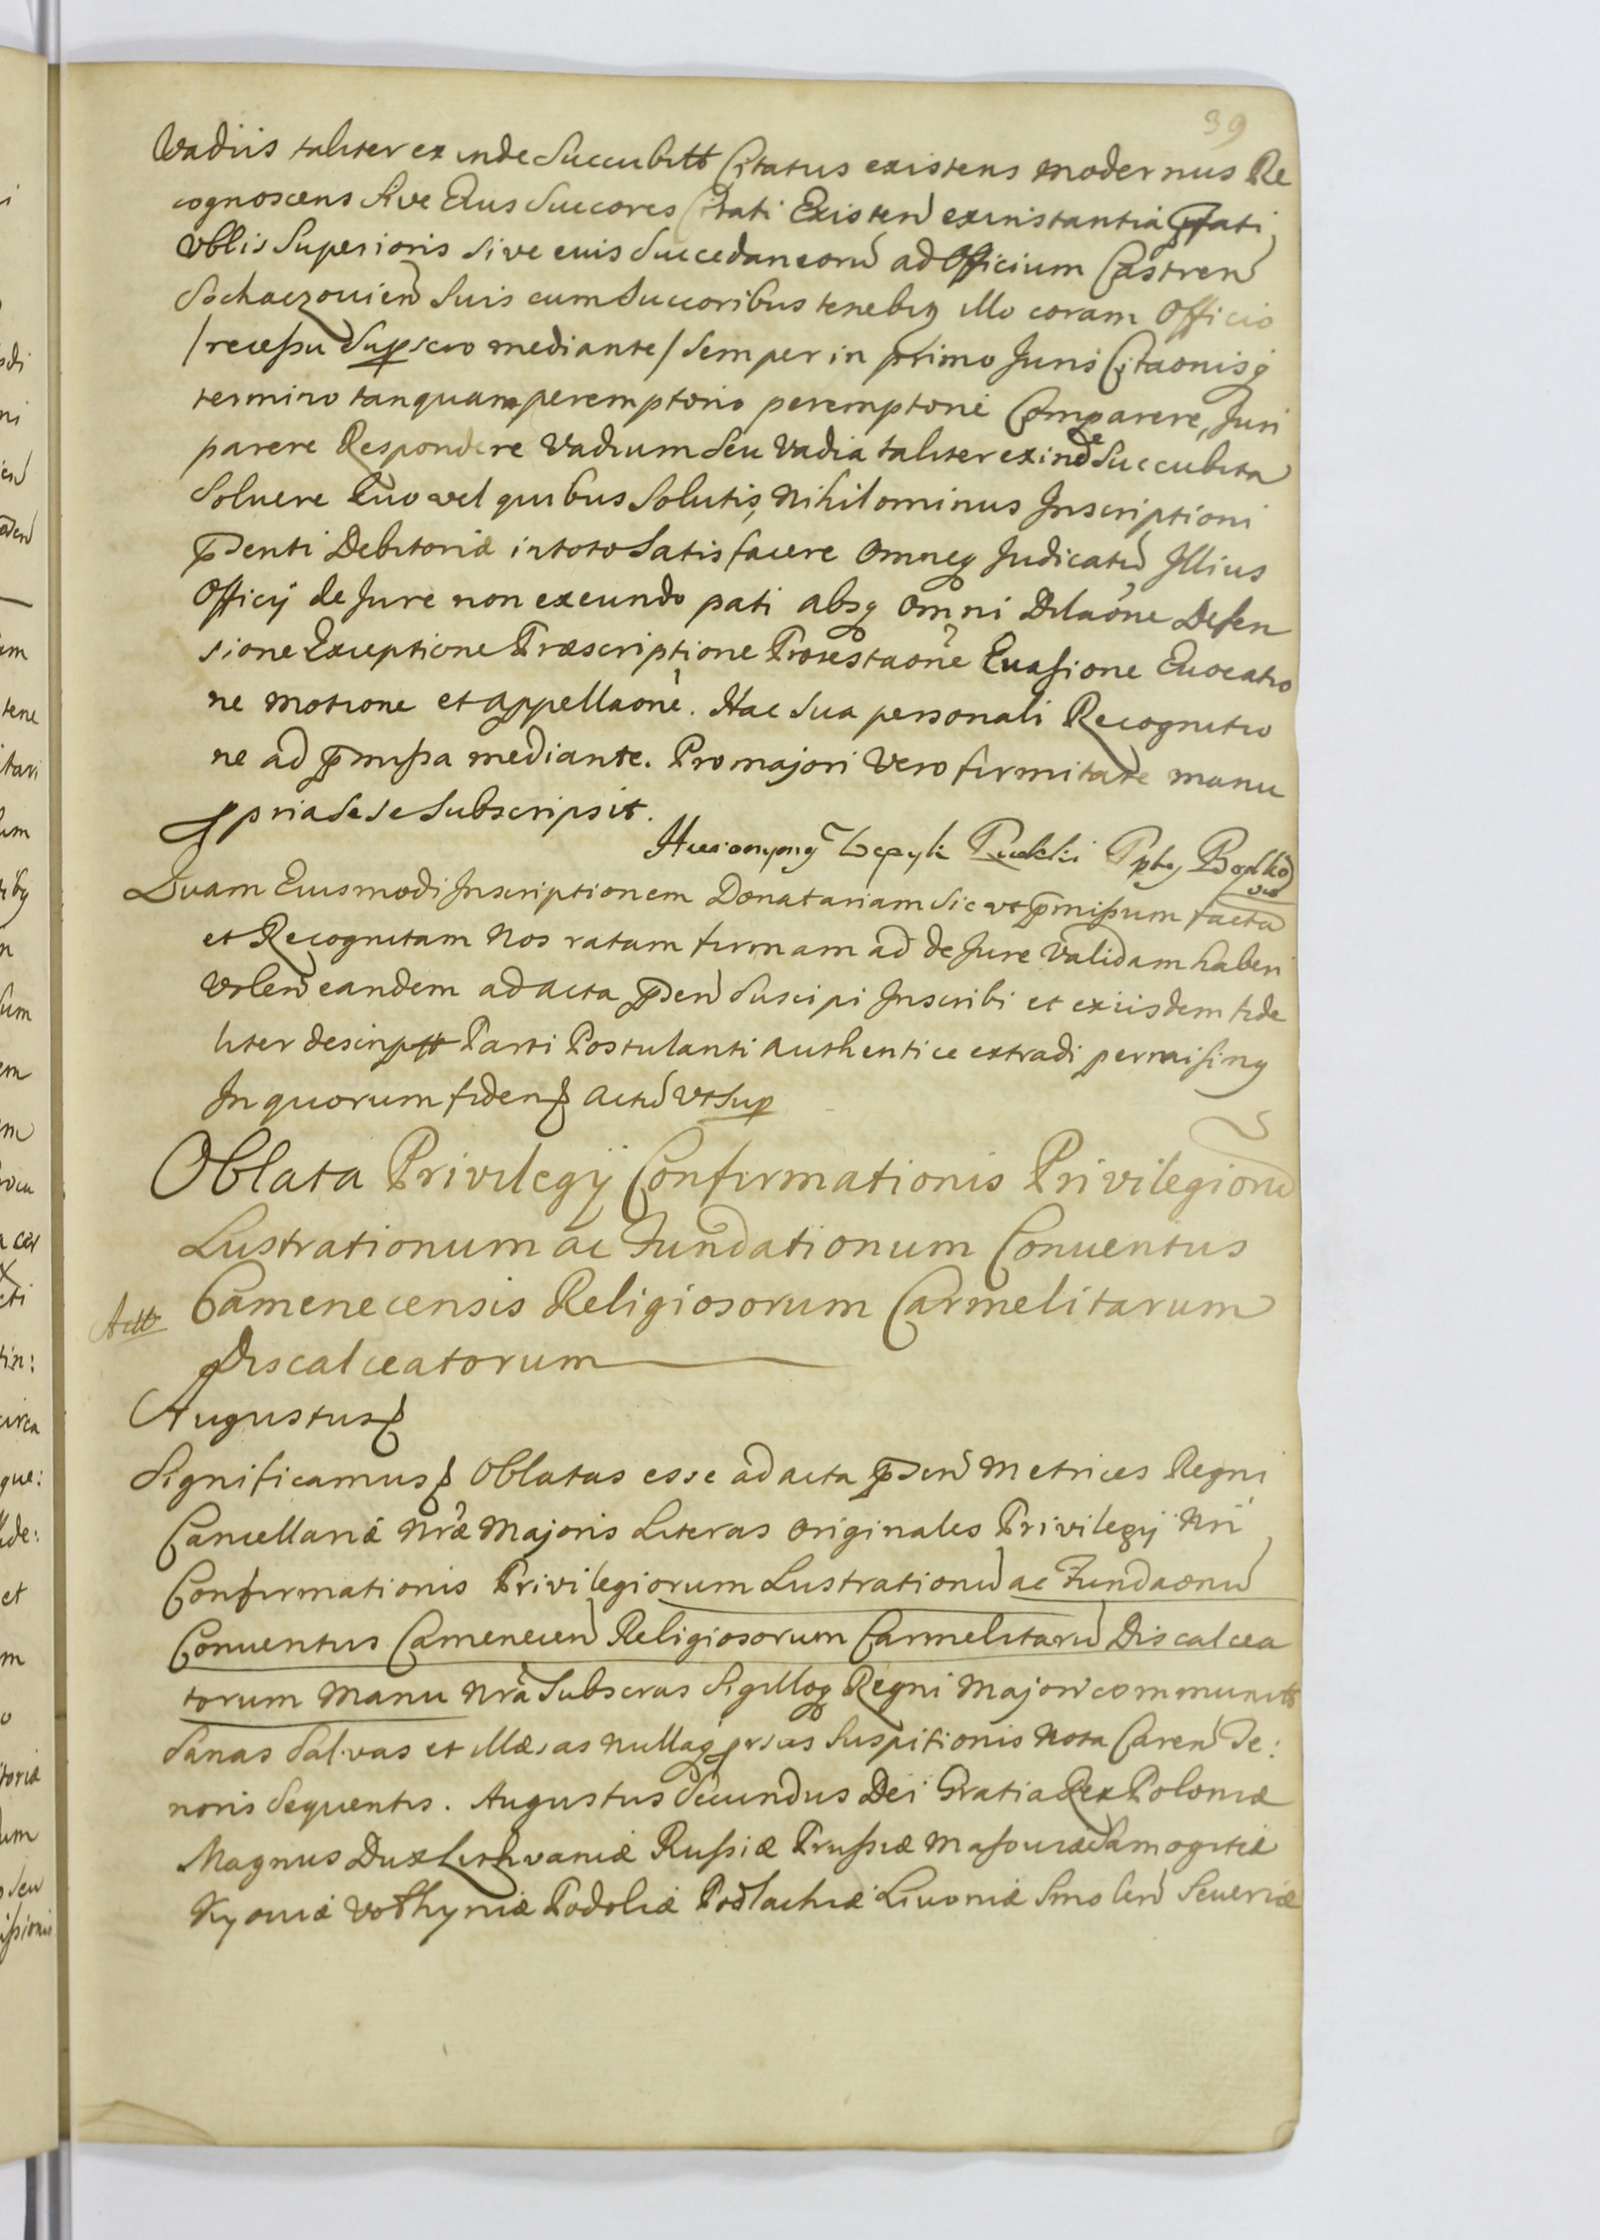 39
Vadiis taliter exinde Succubitt Citatus existens modernus Re
cognoscens sive Eius Succores Citati Existen exinstantia pfati
Vblis Superioris sive euis Succedaneoru ad Officium Castren
Sochaczouien Suis cum Succoribus tenebiq illo coram Officio
/recessu Supscro mediante/ semper in primo Juris Citaonisq
termino tanquam peremptorio peremptorie Comparere, Juri
parere Respondere Vadium Seu Vadia taliter exinde Succubita
Soluere Quo vel quibus Solutis, Nihilominus Inscriptioni
pnsenti Debitoriæ in toto Satisfacere Omneq Judicatu Illius
Officij de Jure non exeundo pati absq Omni Dilaone Defen
sione Exceptione Præscriptione Protestaone Euasione Euocatio
ne motione et appellaone. Hac Sua personali Recognitio
ne ad pmissa mediante. Pro majori Vero firmitate manu
ppria Sese Subscripsit.
Quam Eiusmodi Inscriptionem Donatariam Sic vt pmissum facta
et Recognitam Nos ratam firmam ad de Jure Validam haberi
Volen eandem ad acta psen Suscipi Inscribi et exiisdem fide
liter descriptt Parti Postulanti Authentice extradi permisimq
In quorum fidem Actu vt Sup
Oblata Privilegij Confirmationis Privilegioru
Lustrationum ac Fundationum Conuentus
Camenecensis Religiosorum Carmelitarum
Discalceatorum
Augustus
Significamus Oblatas esse ad acta psen Metrices Regni
Cancellariæ Nræ Majoris Literas originales Privilegij Nri
Confirmationis Privilegiorum Lustrationu ac Fundaonu
Conuentus Camenecen Religiosorum Carmelitaru Discalcea
torum Manu Nra Subscras Sigilloq Regni Majori communitt
Sanas Saluas et illæsas nullaq prsus Suspitionis Nota Caren Te:
noris Sequentis. Augustus Secundus Dei Gratia Rex Poloniæ
Magnus Dux Lithvaniæ Russiæ Prussiæ Masouiæ Samogitiæ
Kyouiæ Volhyniæ Podoliæ Podlachiæ Liuoniæ Smolen Seueriæ